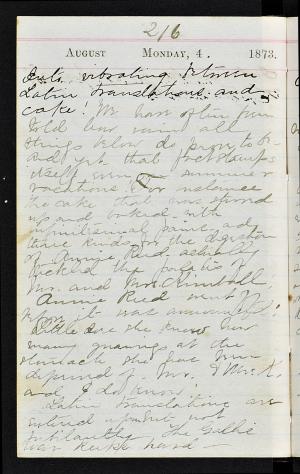 216
AUGUST MONDAY, 4. 1873.
Data, vibrating between
Latin translations and
cake! We have often been
told how vain all
things below do prove to be
and yet that fact stamps
itself even summer
vacations. For instance
the cake that was stirred
up and baked with
and
three kinds for the digestion
of Annie Reid, actually
tickled the palates of
Mr. and Mrs. Kimball!
Annie Reed went off
when it was announced!
Little does she know how
many gnawings at the
stomach she has been
deprived of. Mr. & Mrs. K.
and I do know!
Latin translating are
entered upon but not
jubilantly. The Gallic
War keeps hard